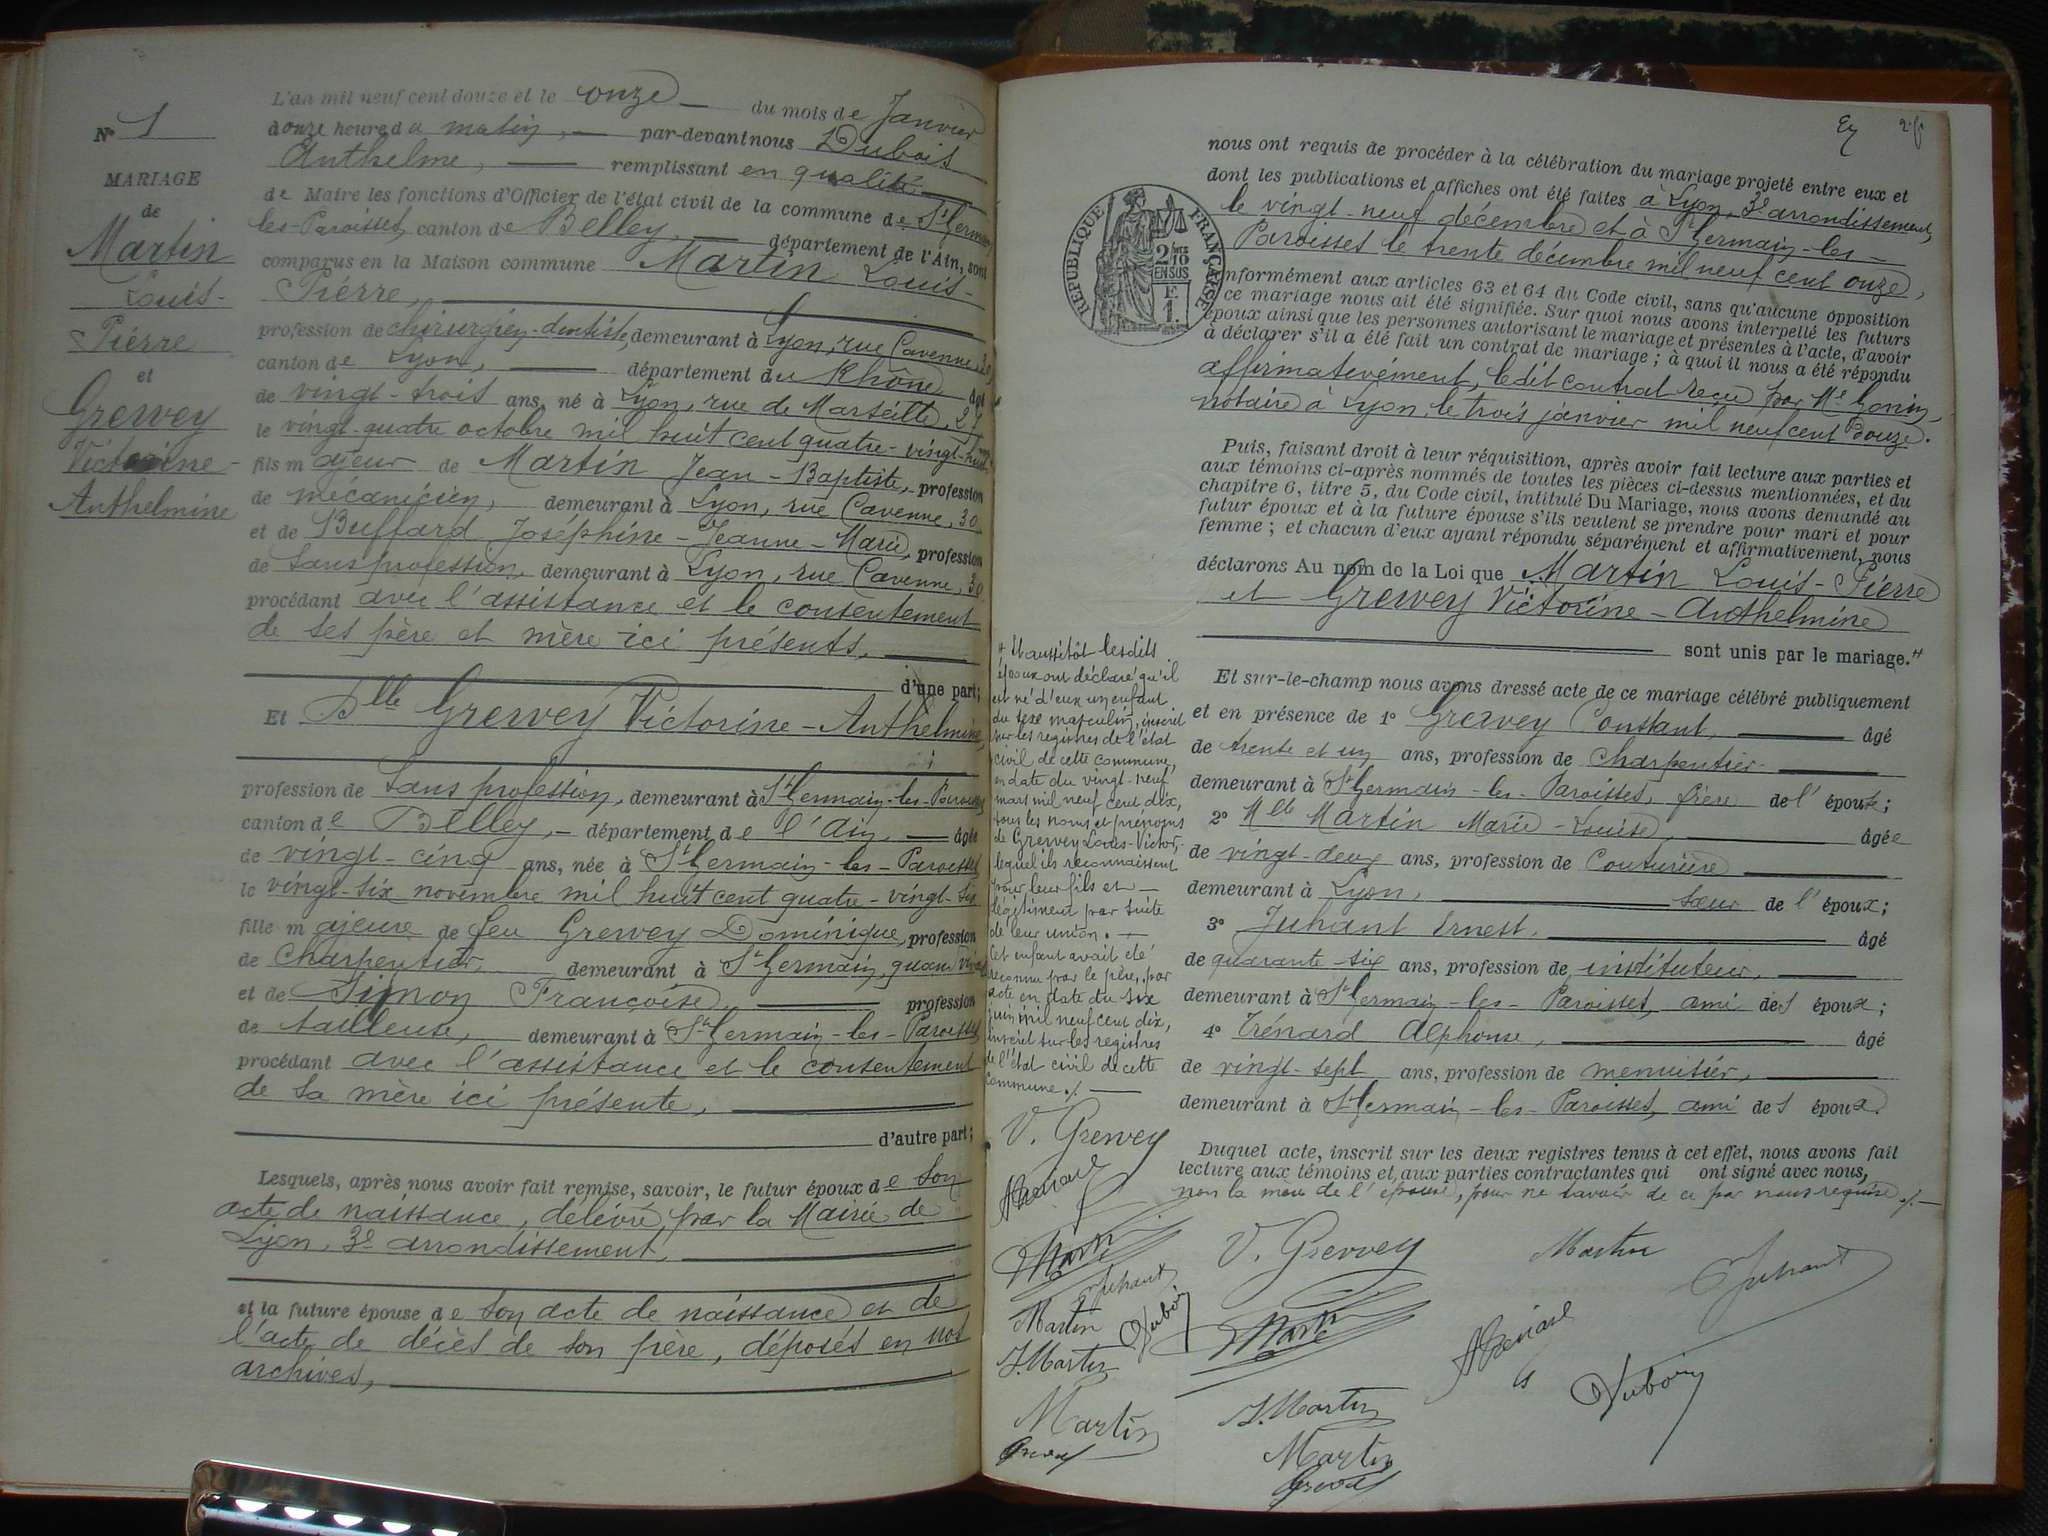 N° 1
MARIAGE
de
Martin
Louis-
Pierre
et
Grewey
Victorine-
Anthelmine
L'an mil neuf cent douze et le onze du mois de Janvier
à onze heures du matin, par-devant nous Dubois
Anthelme, remplissant en qualité
de Maire les fonctions d'Officier de l'état civil de la commune de St Germain
les-Paroisses, canton de Belley, département de l'Ain, sont
comparus en la Maison commune Martin Louis-
Pierre,
profession de chirurgien-dentiste, demeurant à Lyon, rue Cavenne, 30,
canton de Lyon, département du Rhône âgé
de vingt-trois ans, né à Lyon, rue de Marseille, 27
le vingt-quatre octobre mil huit cent quatre-vingt-huit
fils majeur de Martin Jean-Baptiste, profession
de mécanicien, demeurant à Lyon, rue Cavenne, 30
et de Buffard Joséphine-Jeanne-Marie, profession
de Sans profession, demeurant à Lyon, rue Cavenne, 30
procédant avec l'assistance et le consentement
de ses père et mère ici présents,
d'une part;
Et Dlle Grewey Victorine-Anthelmine,
profession de Sans profession, demeurant à St Germain-les-Paroisses
canton de Belley, département de l'Ain, âgée
de vingt-cinq ans, née à St Germain-les-Paroisses
le vingt-six novembre mil huit cent quatre-vingt-six
fille majeure de feu Grewey Dominique, profession
de Charpentier, demeurant à St Germain, quand vivait
et de Simon Françoise, profession
de tailleuse, demeurant à St Germain-les-Paroisses
procédant avec l'assistance et le consentement
de sa mère ici présente,
d'autre part;
Lesquels, après nous avoir fait remise, savoir, le futur époux de son
acte de naissance, délivré par la Mairie de
Lyon, 3e arrondissement,
et la future épouse de son acte de naissance et de
l'acte de décès de son père, déposés en nos
archives,
nous ont requis de procéder à la célébration du mariage projeté entre eux et
dont les publications et affiches ont été faites à Lyon, 3e arrondissement,
le vingt-neuf décembre et à St Germain-les-
Paroisses le trente décembre mil neuf cent onze,
conformément aux articles 63 et 64 du Code civil, sans qu'aucune opposition
à ce mariage nous ait été signifiée. Sur quoi nous avons interpellé les futurs
époux ainsi que les personnes autorisant le mariage et présentes à l'acte, d'avoir
à déclarer s'il a été fait un contrat de mariage ; à quoi il nous a été répondu
affirmativement, ledit contrat reçu par Me Gonin,
notaire à Lyon, le trois janvier mil neuf cent douze.
RÉPUBLIQUE FRANÇAISE
2/10
EN SUS
E
1.
Puis, faisant droit à leur réquisition, après avoir fait lecture aux parties et
aux témoins ci-après nommés de toutes les pièces ci-dessus mentionnées, et du
chapitre 6, titre 5, du Code civil, intitulé Du Mariage, nous avons demandé au
futur époux et à la future épouse s'ils veulent se prendre pour mari et pour
femme ; et chacun d'eux ayant répondu séparément et affirmativement, nous
déclarons Au nom de la Loi que Martin Louis-Pierre
et Grewey Victorine-Anthelmine
sont unis par le mariage.#
Et sur-le-champ nous avons dressé acte de ce mariage célébré publiquement
et en présence de 1° Grewey Constant, âgé
de trente et un ans, profession de Charpentier
demeurant à St Germain-les-Paroisses, frère de l'épouse;
2° Mlle Martin Marie-Louise, âgée
de vingt-deux ans, profession de Couturière
demeurant à Lyon, sœur de l'époux;
3° Juhant Ernest, âgé
de quarante-six ans, profession de instituteur,
demeurant à St Germain-les-Paroisses, ami des époux;
4° Trénard Alphonse, âgé
de vingt-sept ans, profession de menuisier,
demeurant à St Germain-les-Paroisses, ami des époux.
Duquel acte, inscrit sur les deux registres tenus à cet effet, nous avons fait
lecture aux témoins et aux parties contractantes qui ont signé avec nous,
non la mère de l'épouse, pour ne savoir de ce par nous requise ./.
# Et aussitôt lesdits
époux ont déclaré qu'il
est né d'eux un enfant
du sexe masculin, inscrit
sur les registres de l'état
civil de cette commune,
en date du vingt-neuf
mars mil neuf cent dix,
sous les noms et prénoms
de Grewey Louis-Victor,
lequel ils reconnaissent
pour leur fils et
légitiment par suite
de leur union.
Cet enfant avait été
reconnu par le père, par
acte en date du six
juin mil neuf cent dix,
inscrit sur les registres
de l'état civil de cette
commune ./.
V. Grewey
ATrénard
Martin
Juhant
Martin
Dubois
J. Martin
Martin
V. Grewey
Martin
Juhant
Martin
ATrénard
Dubois
J. Martin
Martin